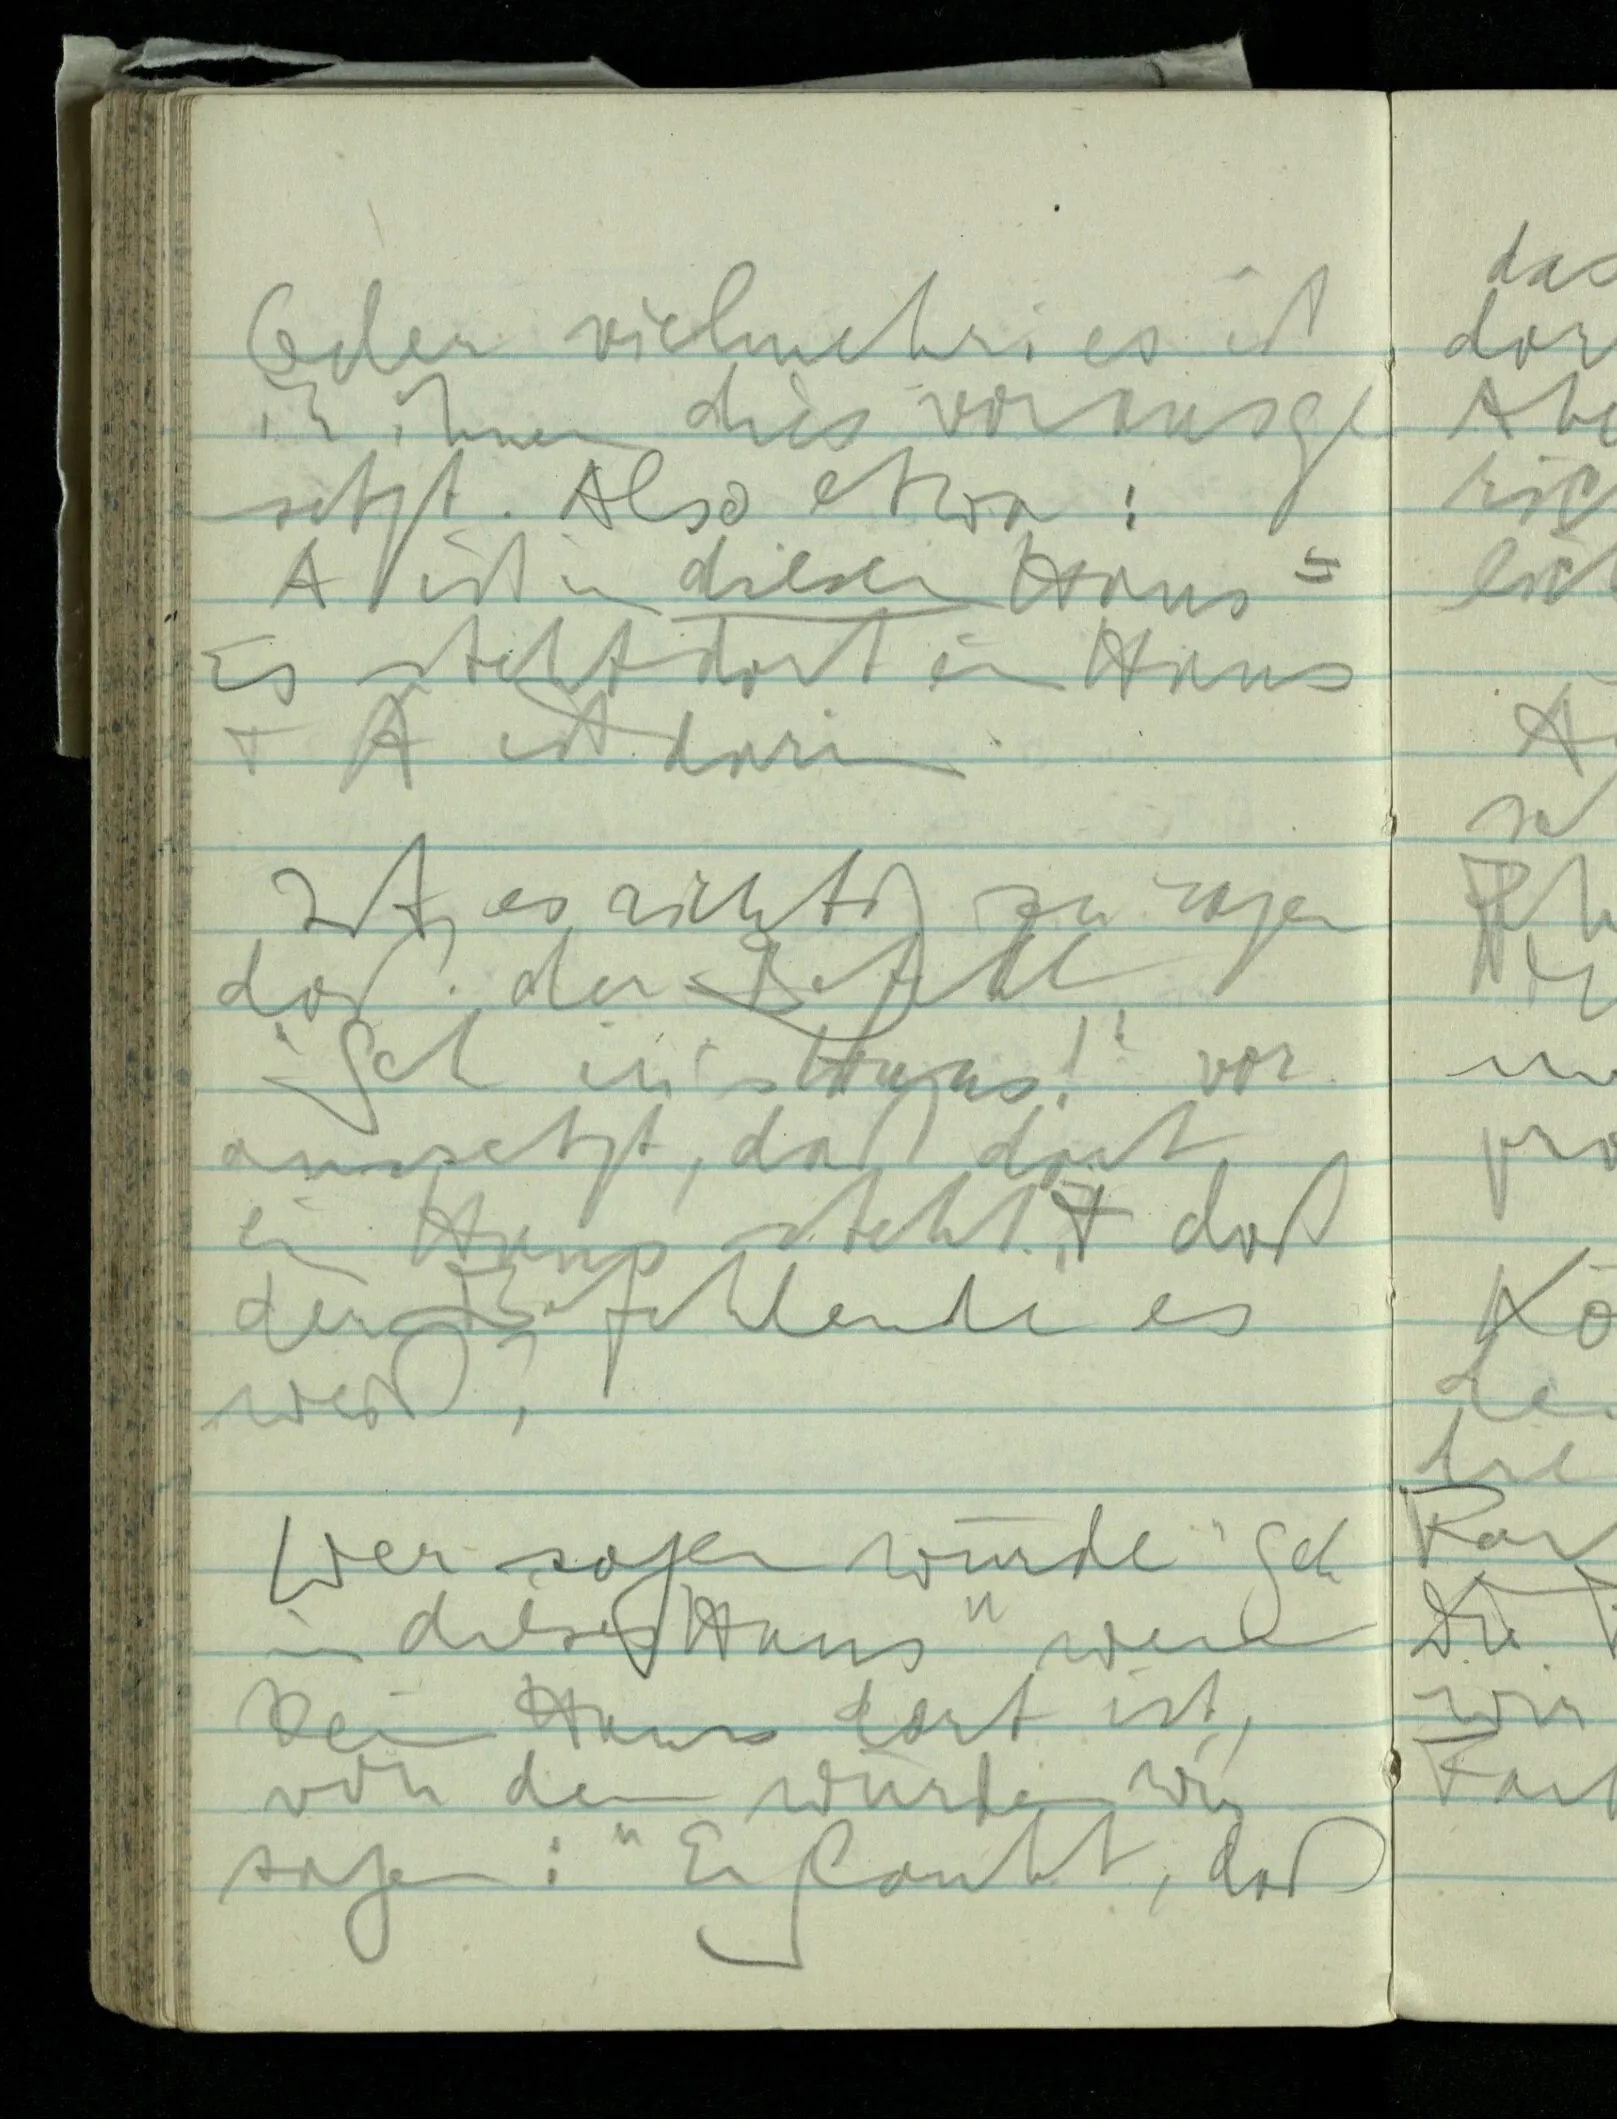 Oder vielmehr: es ist
in ihnen dies vorausge
setzt. Also etwa:
A ist in diesem Haus =
Es steht dort ein Haus
+ A ist darin.
Ist es richtig zu sagen
daß der Befehl
"Geh in's Haus!" vor
aussetzt, daß dort
ein Haus steht + daß
der Befehlende es
weiß?
Wer sagen würde "Geh
in dieses Haus" wenn
kein Haus dort ist,
von dem würden wir
sagen: "Er glaubt, daß
das
dor
Abe
ric
lic
se
pro
Kö
de
die
Die
wir